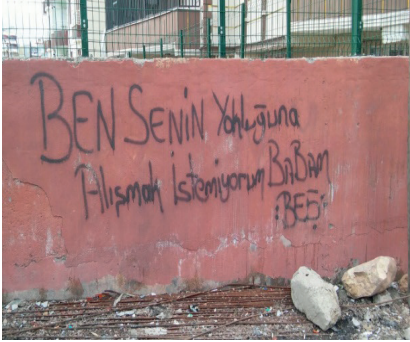 BEN SENİN Yokluğuna
Alışmak İstemiyorum BABAM
:BEŞ: